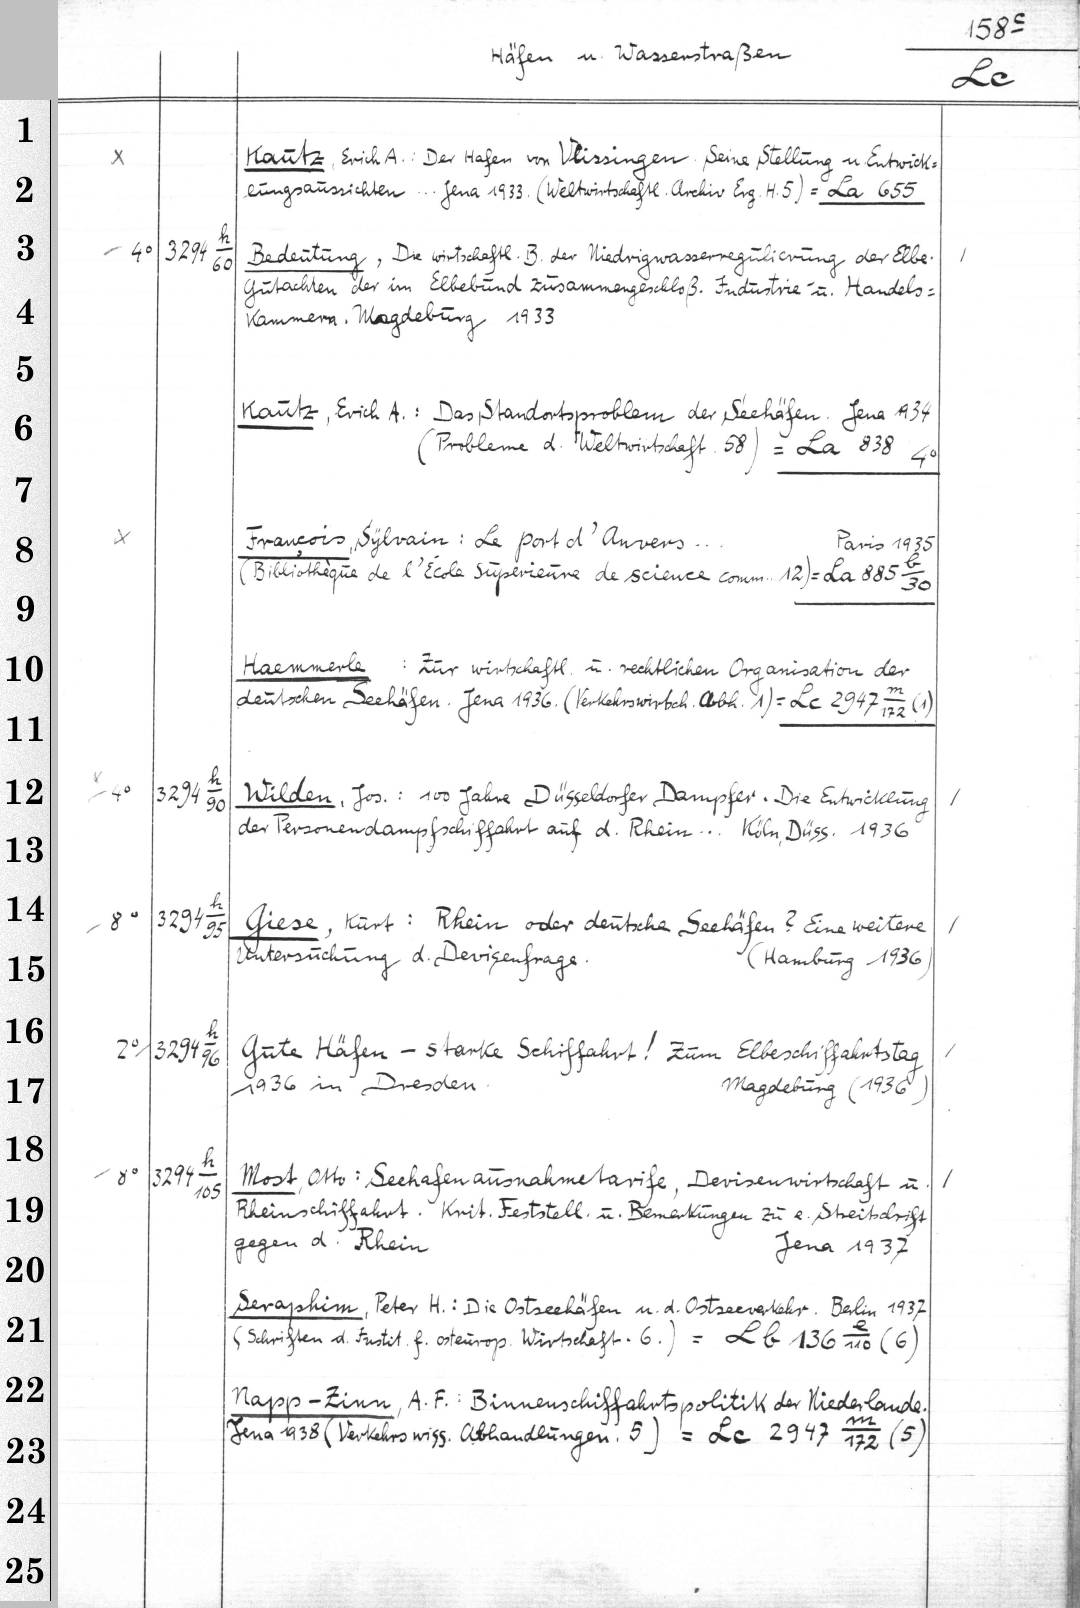 158c
Häfen u. Wasserstraßen
Lc
1
x Kautz, Erich A.: Der Hafen von Vlissingen. Seine Stellung u. Entwick=
2
lungsaussichten ... Jena 1933. (Weltwirtschaftl. Archiv Erg. H. 5) = La 655
3
– 4° 3294 h/60 Bedeutung, Die wirtschaftl. B. der Niedrigwasserregulierung der Elbe. /
Gutachten der im Elbebund zusammengeschloß. Industrie- u. Handels=
4
kammern. Magdeburg 1933
5
6
Kautz, Erich A.: Das Standortsproblem der Seehäfen. Jena 1934
(Probleme d. Weltwirtschaft. 58) = La 838 4°
7
8
x François, Sylvain: Le port d'Anvers ... Paris 1935
(Bibliothèque de l'École Supérieure de science comm. 12) = La 885 b/30
9
10
Haemmerle : Zur wirtschaftl. u. rechtlichen Organisation der
deutschen Seehäfen. Jena 1936. (Verkehrswirtsch. Abh. 1) = Lc 2947 m/172 (1)
11
12
x – 4° 3294 h/90 Wilden, Jos.: 100 Jahre Düsseldorfer Dampfer. Die Entwicklung /
der Personendampfschiffahrt auf d. Rhein ... Köln, Düss. 1936
13
14
– 8° 3294 h/95 Giese, Kurt: Rhein oder deutsche Seehäfen? Eine weitere /
Untersuchung d. Devisenfrage. (Hamburg 1936)
15
16
2° / 3294 h/96 Gute Häfen – starke Schiffahrt! Zum Elbeschiffahrtstag /
17
1936 in Dresden. Magdeburg (1936)
18
– 8° 3294 h/105 Most, Otto: Seehafenausnahmetarife, Devisenwirtschaft u. /
19
Rheinschiffahrt. Krit. Feststell. u. Bemerkungen zu e. Streitschrift
gegen d. Rhein Jena 1937
20
Seraphim, Peter H.: Die Ostseehäfen u. d. Ostseeverkehr. Berlin 1937
21
(Schriften d. Instit. f. osteurop. Wirtschaft. 6.) = Lb 136 e/110 (6)
22
Napp-Zinn, A. F.: Binnenschiffahrtspolitik der Niederlande.
Jena 1938 (Verkehrswiss. Abhandlungen. 5) = Lc 2947 m/172 (5)
23
24
25